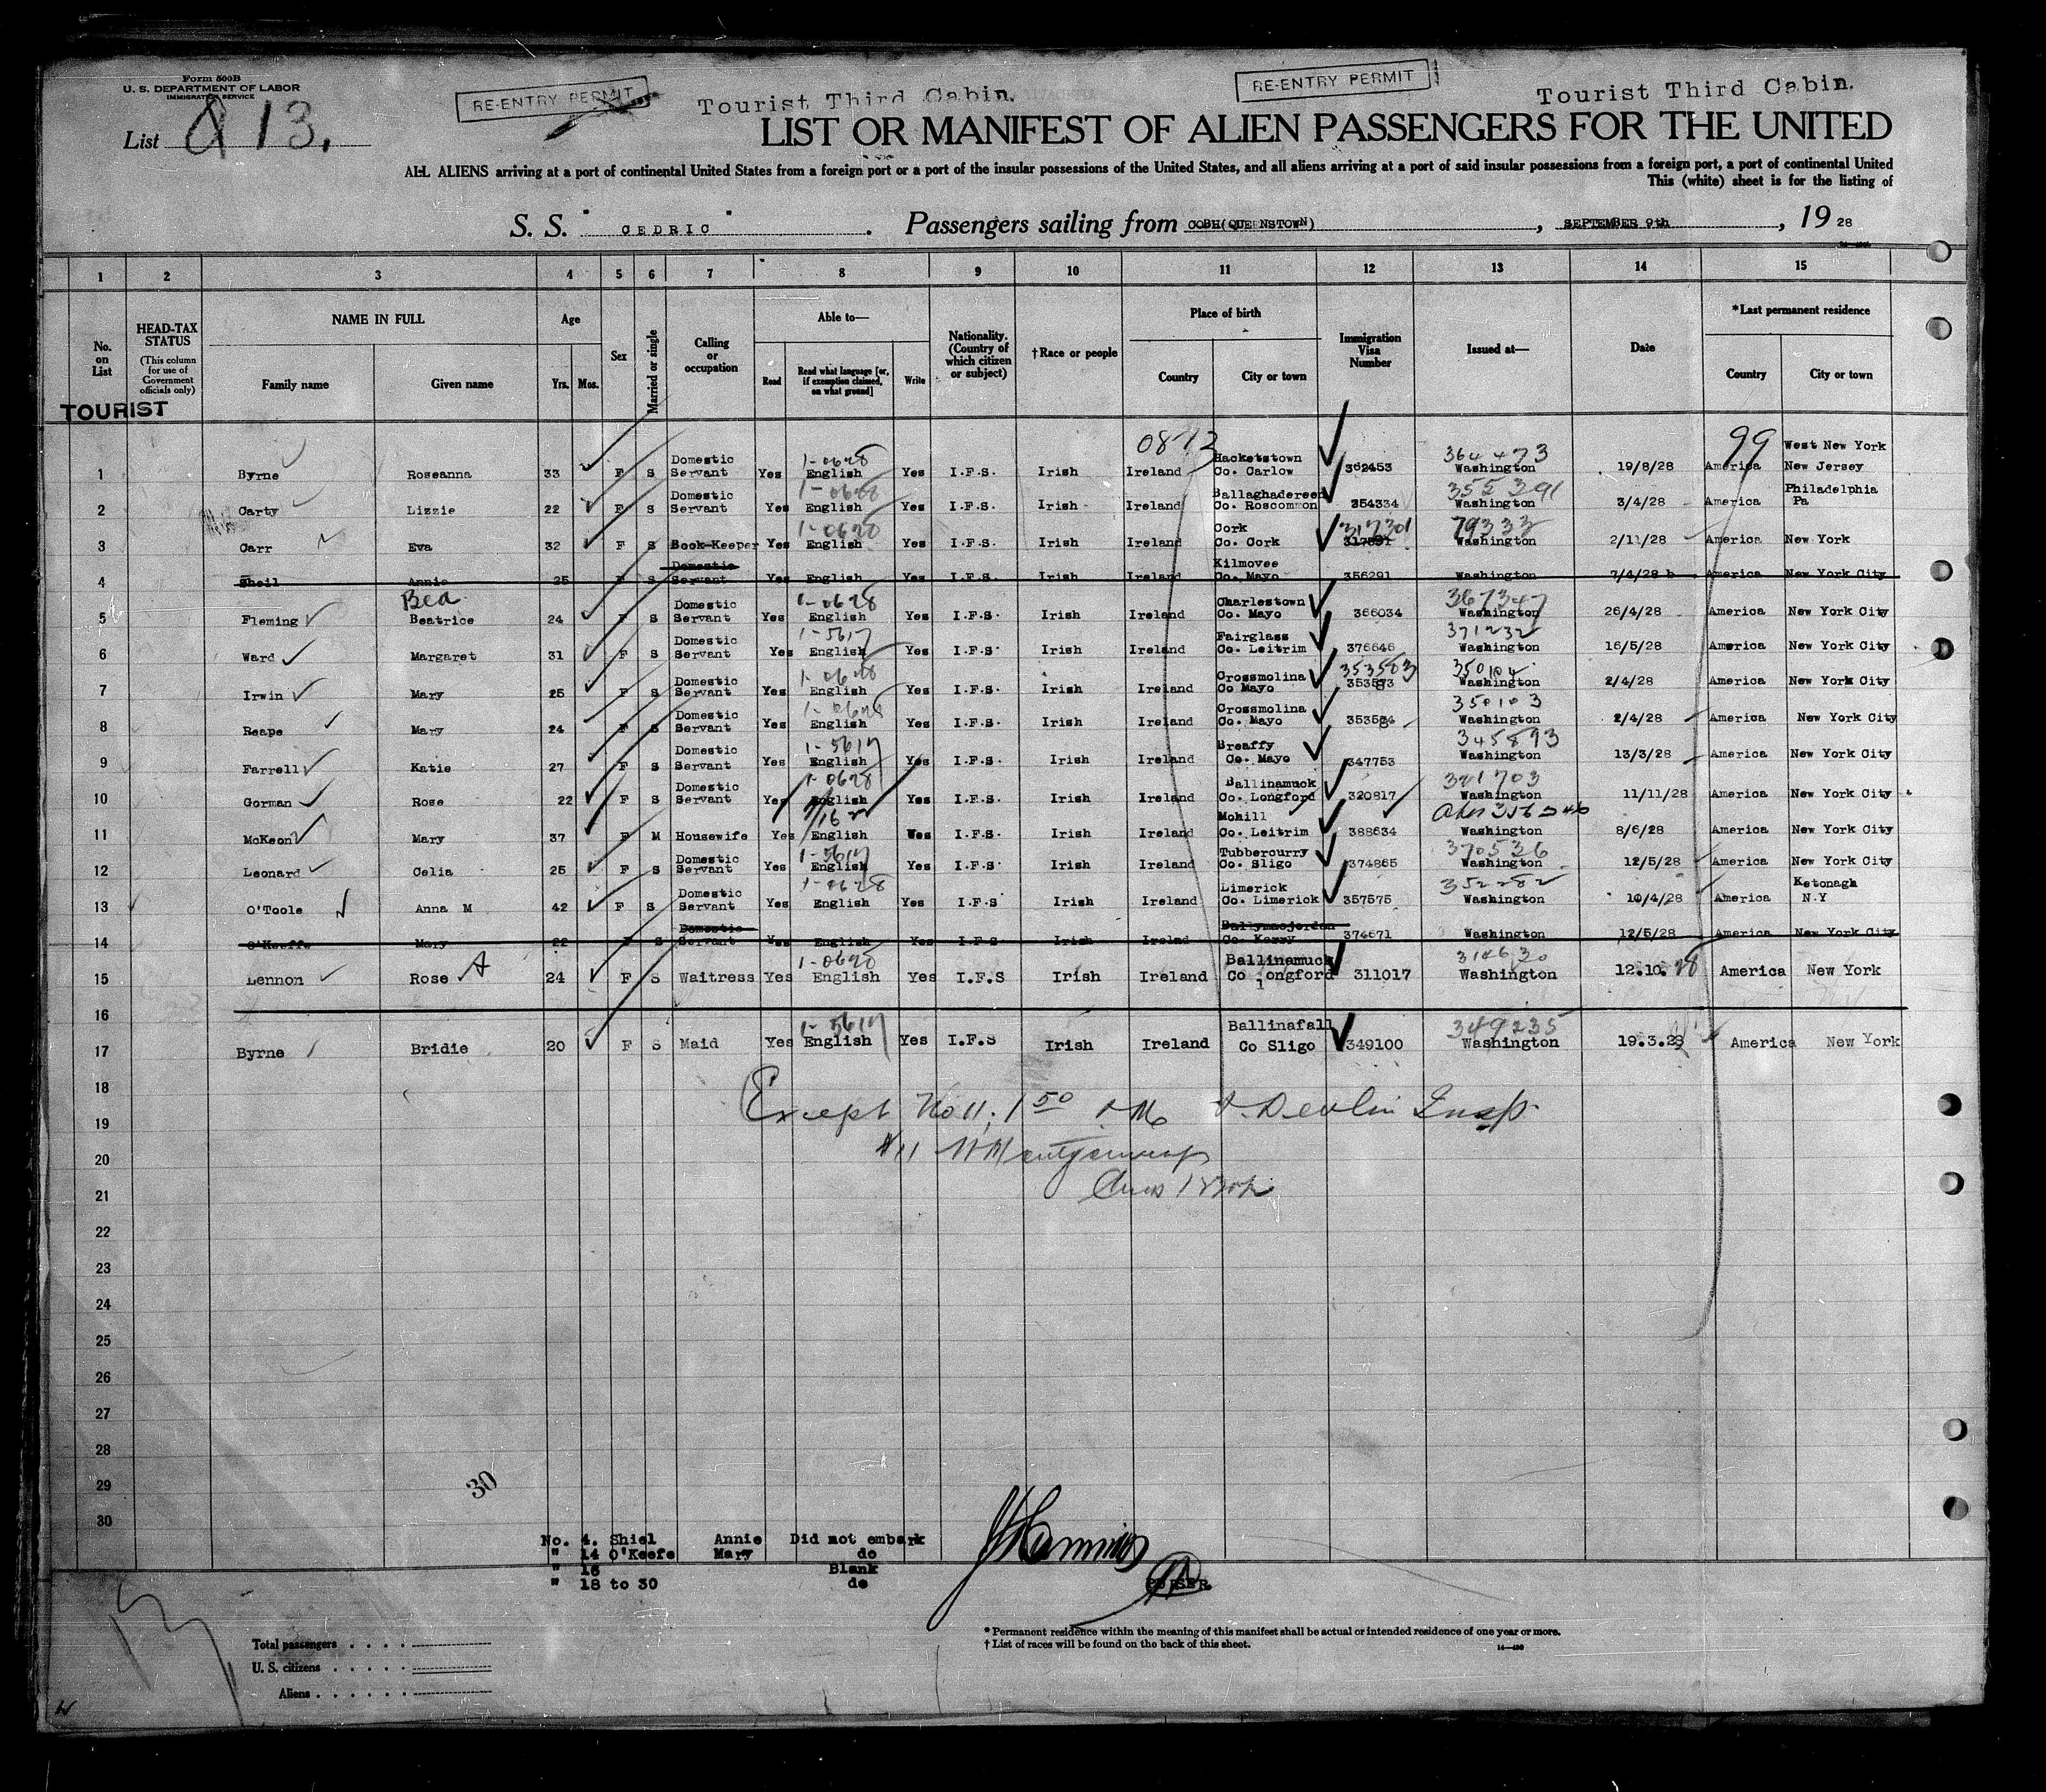 Form 500B
U. S. DEPARTMENT OF LABOR
IMMIGRATION SERVICE
List 13.
RE-ENTRY PERMIT
RE-ENTRY PERMIT
Tourist Third Cabin.
Tourist Third Cabin.
LIST OR MANIFEST OF ALIEN PASSENGERS FOR THE UNITED
ALL ALIENS arriving at a port of continental United States from a foreign port or a port of the insular possessions of the United States, and all aliens arriving at a port of said insular possessions from a foreign port, a port of continental United
This (white) sheet is for the listing of
S. S. " CEDRIC " . Passengers sailing from COBH(QUEENSTOWN) , SEPTEMBER 9th , 19 28
1 2 3 4 5 6 7 8 9 10 11 12 13 14 15
No. on List
HEAD-TAX STATUS
(This column for use of Government officials only)
NAME IN FULL
Family name Given name
Age
Yrs. Mos.
Sex
Married or single
Calling or occupation
Able to—
Read
Read what language [or, if exemption claimed, on what ground]
Write
Nationality. (Country of which citizen or subject)
†Race or people
Place of birth
Country City or town
Immigration Visa Number
Issued at—
Date
*Last permanent residence
Country City or town
TOURIST
0873 99
1 Byrne Roseanna 33 F S Domestic Servant Yes 1-0628 English Yes I.F.S. Irish Ireland Hacketstown Co. Carlow 362453 364473 Washington 19/8/28 America West New York New Jersey
2 Carty Lizzie 22 F S Domestic Servant Yes 1-0628 English Yes I.F.S. Irish Ireland Ballaghadereen Co. Roscommon 354334 355391 Washington 3/4/28 America Philadelphia Pa
3 Carr Eva 32 F S Book-Keeper Yes 1-0628 English Yes I.F.S. Irish Ireland Cork Co. Cork 317301 79333 Washington 2/11/28 America New York
4 Sheil Annie 25 F S Domestic Servant Yes English Yes I.F.S. Irish Ireland Kilmovee Co. Mayo 356291 Washington 7/4/28 America New York City
5 Fleming Bea Beatrice 24 F S Domestic Servant Yes 1-0628 English Yes I.F.S. Irish Ireland Charlestown Co. Mayo 366034 367347 Washington 26/4/28 America New York City
6 Ward Margaret 31 F S Domestic Servant Yes 1-5617 English Yes I.F.S. Irish Ireland Fairglass Co. Leitrim 376646 371232 Washington 16/5/28 America New York City
7 Irwin Mary 25 F S Domestic Servant Yes 1-0628 English Yes I.F.S. Irish Ireland Crossmolina Co Mayo 353583 350104 Washington 2/4/28 America New York City
8 Reape Mary 24 F S Domestic Servant Yes 1-0628 English Yes I.F.S. Irish Ireland Crossmolina Co. Mayo 353584 350103 Washington 2/4/28 America New York City
9 Farrell Katie 27 F S Domestic Servant Yes 1-5617 English Yes I.F.S. Irish Ireland Breaffy Co. Mayo 347753 345893 Washington 13/3/28 America New York City
10 Gorman Rose 22 F S Domestic Servant Yes 1-0628 English Yes I.F.S. Irish Ireland Ballinamuck Co. Longford 320817 321703 Washington 11/11/28 America New York City
11 McKeon Mary 37 F M Housewife Yes English Yes I.F.S. Irish Ireland Mohill Co. Leitrim 388634 Washington 8/6/28 America New York City
12 Leonard Celia 25 F S Domestic Servant Yes 1-5617 English Yes I.F.S. Irish Ireland Tubbercurry Co. Sligo 374865 370536 Washington 12/5/28 America New York City
13 O'Toole Anna M 42 F S Domestic Servant Yes 1-0628 English Yes I.F.S Irish Ireland Limerick Co. Limerick 357575 352282 Washington 10/4/28 America Ketonagh N.Y
14 O'Keeffe Mary 22 F S Domestic Servant Yes English Yes I.F.S Irish Irelad Ballymacjordan Co. Kerry 374671 Washington 12/5/28 America New York City
15 Lennon Rose A 24 F S Waitress Yes 1-0628 English Yes I.F.S Irish Ireland Ballinamuck Co longford 311017 314630 Washington 12.10.28 America New York
16
17 Byrne Bridie 20 F S Maid Yes 1-5617 English Yes I.F.S Irish Ireland Ballinafall Co Sligo 349100 349235 Washington 19.3.28 America New York
18
19 Except No 11. 1 50 PM Devlin Insp.
20 #11 Montgomery
21
22
23
24
25
26
27
28
29
30
30
No. 4. Shiel Annie Did not embark
" 14 O'Keefe Mary do
" 16 Blank
" 18 to 30 do
PURSER.
* Permanent residence within the meaning of this manifest shall be actual or intended residence of one year or more.
† List of races will be found on the back of this sheet.
Total passengers
U. S. citizens
Aliens